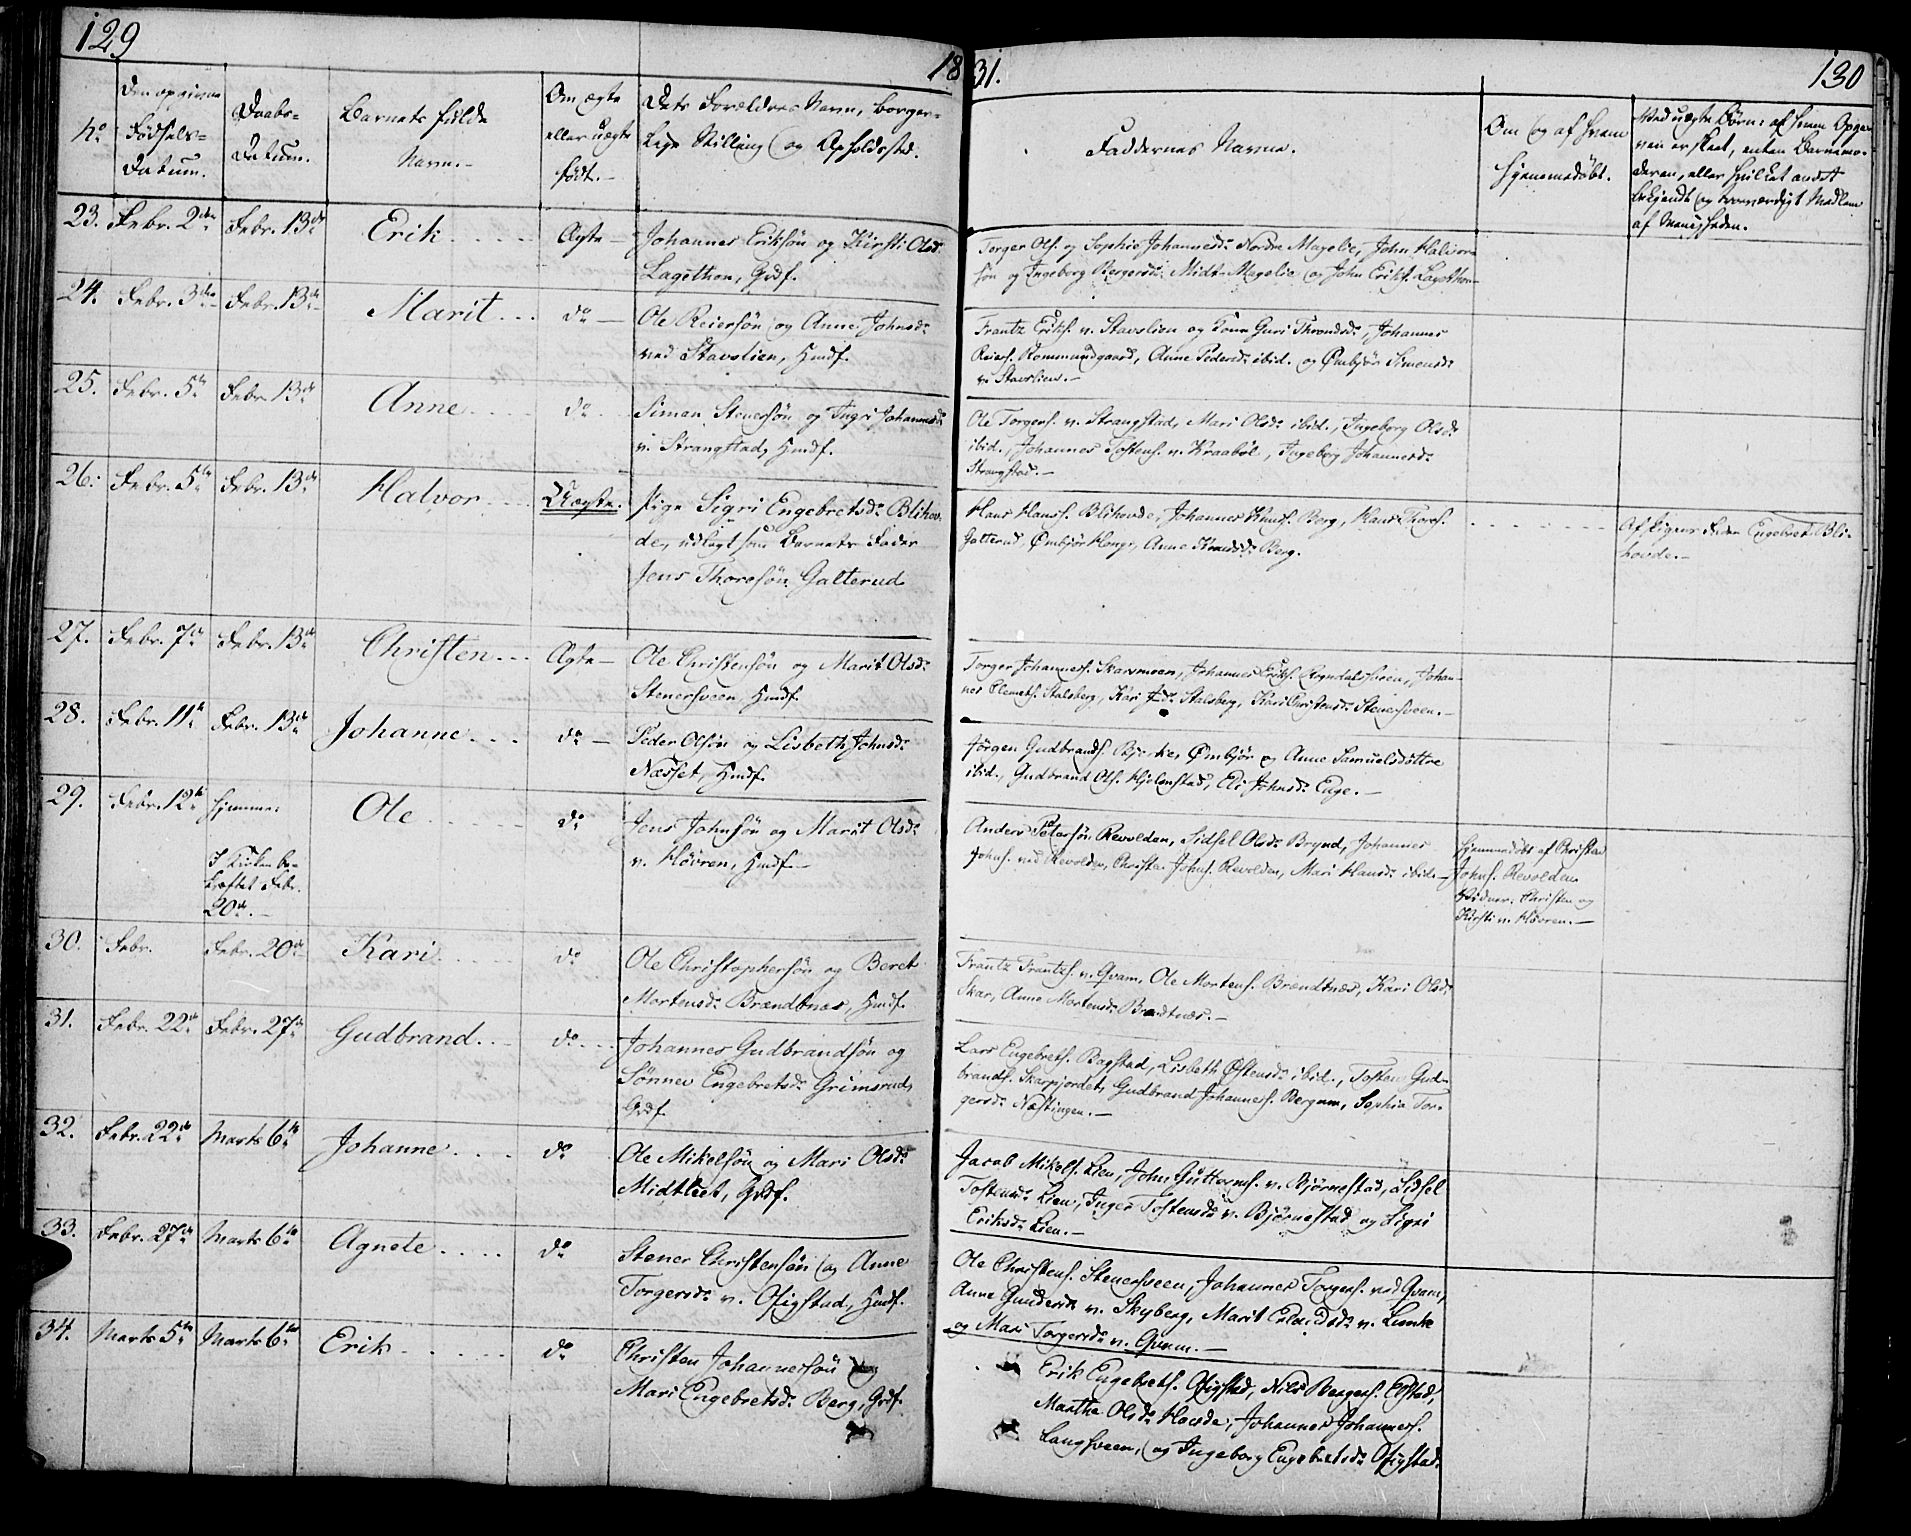 129
1831.
130
No
Den opgivne Fødsels-Datum.
Daabs-Datum.
Barnets fulde Navn.-
Om ægte eller uægte født.-
Dets Forældres Navn, borgerlige Stilling og Opholdssted.
Faddernes Navne.
Om og af hvem hjemmedøbt.
Ved uægte Børn: af hvem Opgaven er skeet, enten Barnemoderen, eller hvilket andet bekjendt og troværdigt Medlem af Menigheden.
23. Febr. 2den Febr. 13de Erik.... Ægte- Johannes Eriksøn og Kirsti Olsd.
Lagethon, Grdf.
Torger Ols. og Sophie Johannesd. Nordre Magelie, John Halvor-
søn og Ingeborg Bergersd. Midt-Magelie og John Eriks. Lagethon-
24. Febr. 3die Febr. 13de Marit... do- Ole Reiersøn og Anne Johnsd.
ved Stavslien, Hmdf.
Frantz Eriks. v. Stavslien og Kone Guri Throndsd., Johannes
Reiers. Rommundgaard, Anne Pedersd. ibid. og Ømbjør Simensd.
v. Stavslien.-
25. Febr. 5te Febr. 13de Anne.... do. Simen Stenersøn og Ingri Johannesd.
v. Strangstad, Hmdf.
Ole Torgers. v. Strangstad, Mari Olsd. ibid., Ingeborg Olsd.
ibid., Johannes Tostens. v. Kraabøl, Ingeborg Johannesd.
Strangstad.-
26. Febr. 5te Febr. 13de Halvor... Uægte. Pige Sigri Engebretsd. Blihov-
de, udlagt som Barnets Fader
Jens Thoresøn Galterud
Hans Hans. Blihovde, Johannes Knuds. Berg, Hans Thores.
Galterud, Ømbjør Haugs, Anne Knudsd. Berg.
Af Pigens Fader Engebret Bli-
hovde.-
27. Febr. 7de Febr. 13de Christen... Ægte- Ole Christensøn og Marit Olsd.
Stenersveen, Hmdf.
Torger Johannes. Skarsmoen, Johannes Eriks. Ryndalssveen, Johan-
nes Clemets. Stalsberg, Kari Jd. Stalsberg, Kari Christensd. Stenersveen.-
28. Febr. 11te Febr. 13de Johanne... do- Peder Olsøn og Lisbeth Johnsd.
Næsset, Hmdf.
Jørgen Gudbrands. Bjerke, Ømbjør og Anne Samuelsdøttre
ibid., Gudbrand Ols. Hjelmstad, Eli Johnsd. Enge.-
29. Febr. 12te Hjemme: Ole.... do Jens Johnsøn og Marit Olsd.
I Kirken be-
kræftet Febr.
20de.-
v. Høvren, Hmdf-
Anders Petersøn Revolden, Sidsel Olsd. Brynd, Johannes
Johns. ved Revolden, Christen Johns. Revolden, Mari Hansd. ibid.-
Hjemmedøbt af Christen
Johns. Revolden.
Vidner: Christen og
Kirsti v. Høvren.-
30. Febr. Febr. 20de Kari.... do Ole Christophersøn og Beret
Mortensd. Brændtnæs, Hmdf.
Frantz Frantzs. v. Qvam, Ole Mortens. Brændtnæs, Kari Olsd.
Skar, Anne Mortensd. Brændtnæs.-
31. Febr. 22de Febr. 27de Gudbrand... do... Johannes Gudbrandsøn og
Sønnev Engebretsd. Grimsrud,
Grdf.
Lars Engebrets. Bagstad, Lisbeth Østensd. ibid., Tosten Gud-
brands. Skarpjordet, Gudbrand Johannes. Bergum, Sophia Tor-
gersd. Næstingen.-
32. Febr. 22de Marts 6te Johanne.... do Ole Mikelsøn og Mari Olsd.
Midtliet, Grdf.
Jacob Mikels. Lien, John Guttorms. v. Bjørnestad, Sidsel
Tostensd. Lien, Inger Tostensd. v. Bjørnestad og Sigri
Eriksd. Lien.-
33. Febr. 27de Marts 6te Agnete.... do Stener Christensøn og Anne
Torgersd. v. Ofigstad, Hmdf.
Ole Christens. Stenersveen, Johannes Torgers. ved Qvam,
Anne Gundersd. v. Skyberg, Marit Erlandsd. v. Lunke
og Mari Torgersd. v. Qvam.-
34. Marts 5te Marts 6te Erik..... do Christen Johannesøn og
Mari Engebretsd. Berg, Grdf.
Erik Engebrets. Ofigstad, Nils Bergers. Opstad,
Marthe Olsd. Hovde, Johannes Johannes.
Langsveen, og Ingeborg Engebretsd. Ofigstad.